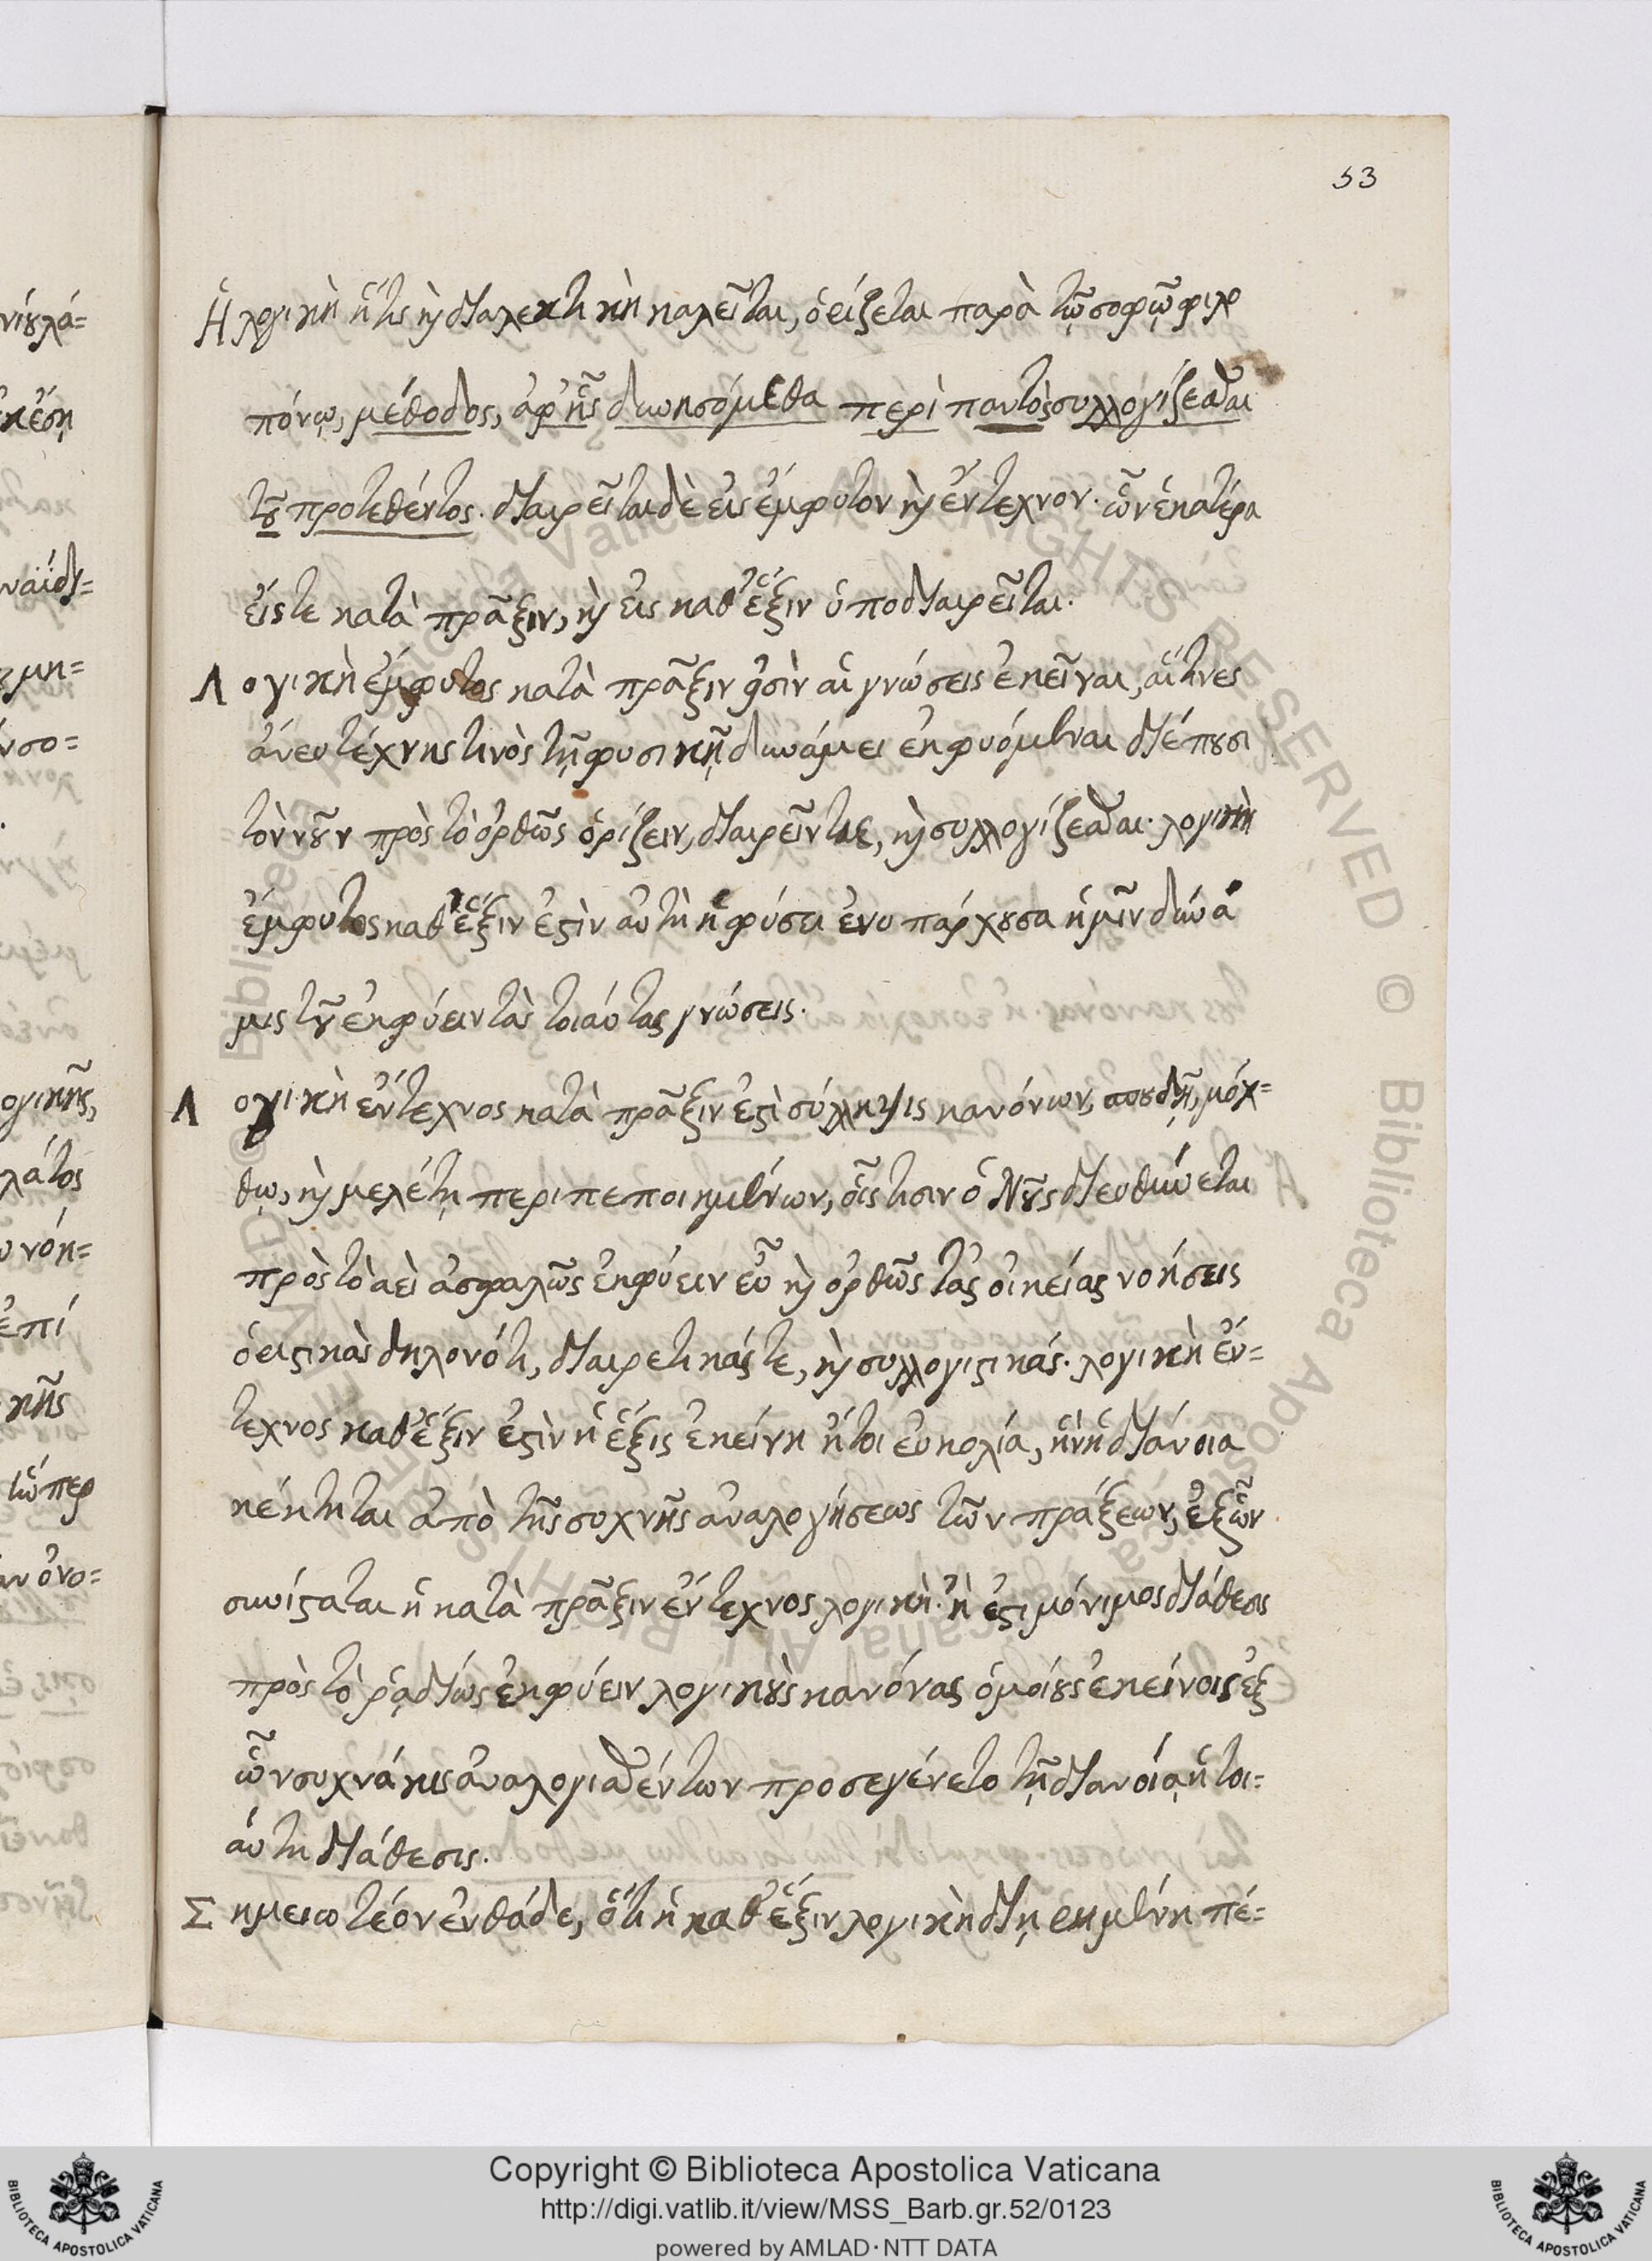 53
Ἡ λογικὴ ἥτις καὶ διαλεκτικὴ καλεῖται, ὁρίζεται παρὰ τῷ σοφῷ φιλο
πόνῳ, μέθοδος, ἀφ' ἧς δυνησόμεθα περὶ παντὸς συλλογίζεσθαι
τοῦ προτεθέντος. διαιρεῖται δὲ εἰς ἔμφυτον καὶ ἔντεχνον. ὧν ἑκατέρα
εἴς τε κατὰ πρᾶξιν, καὶ εἰς καθ' ἕξιν ὑποδιαιρεῖται.
Λογικὴ ἔμφυτος κατὰ πρᾶξιν εἰσὶν αἱ γνώσεις ἐκεῖναι, αἵτινες
ἄνευ τέχνης τινὸς τῇ φυσικῇ δυνάμει ἐκφυόμεναι διέπουσι
τὸν νοῦν πρὸς τὸ ὀρθῶς ὁρίζειν, διαιρεῖν τε, καὶ συλλογίζεσθαι. λογικὴ
ἔμφυτος καθ' ἕξιν ἐστὶν αὐτὴ ἡ φύσει ἐνυπάρχουσα ἡμῖν δύνα
μις τοῦ ἐκφύειν τὰς τοιαύτας γνώσεις.
Λογικὴ ἔντεχνος κατὰ πρᾶξιν ἐστὶ σύλληψις κανόνων, σπουδῇ, μόχ=
θῳ, καὶ μελέτῃ περιπεποιημένων, οἷς τισιν ὁ Νοῦς διευθύνεται
πρὸς τὸ ἀεὶ ἀσφαλῶς ἐκφύειν εὖ καὶ ὀρθῶς τὰς οἰκείας νοήσεις
ὁριστικὰς δηλονότι, διαιρετικάς τε, καὶ συλλογιστικάς. λογικὴ ἔν=
τεχνος καθ' ἕξιν ἐστὶν ἡ ἕξις ἐκείνη ἤτοι εὐκολία, ἣν ἡ διάνοια
κέκτηται ἀπὸ τῆς συχνῆς ἀναλογήσεως τῶν πράξεων, ἐξ ὧν
συνίσταται ἡ κατὰ πρᾶξιν ἔντεχνος λογικὴ. ἢ ἐστι μόνιμος διάθεσις
πρὸς τὸ ῥᾳδίως ἐκφύειν λογικοὺς κανόνας ὁμοίους ἐκείνοις ἐξ
ὧν συχνάκις ἀναλογισθέντων προσεγένετο τῇ διανοίᾳ ἡ τοι=
αύτη διάθεσις.
Σημειωτέον ἐνθάδε, ὅτι ἡ καθ' ἕξιν λογικὴ διῃρημένη πέ=
Copyright © Biblioteca Apostolica Vaticana
http://digi.vatlib.it/view/MSS_Barb.gr.52/0123
powered by AMLAD·NTT DATA